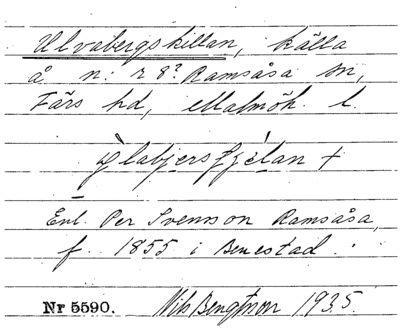 Ulvabergskillan, källa
å n: r 8? Ramsåsa sn,
Färs hd, Malmöh. l.
Enl. Per Svensson Ramsåsa,
f. 1855 i Benestad.
Nr 5590. Nils Bengtsson 1935.